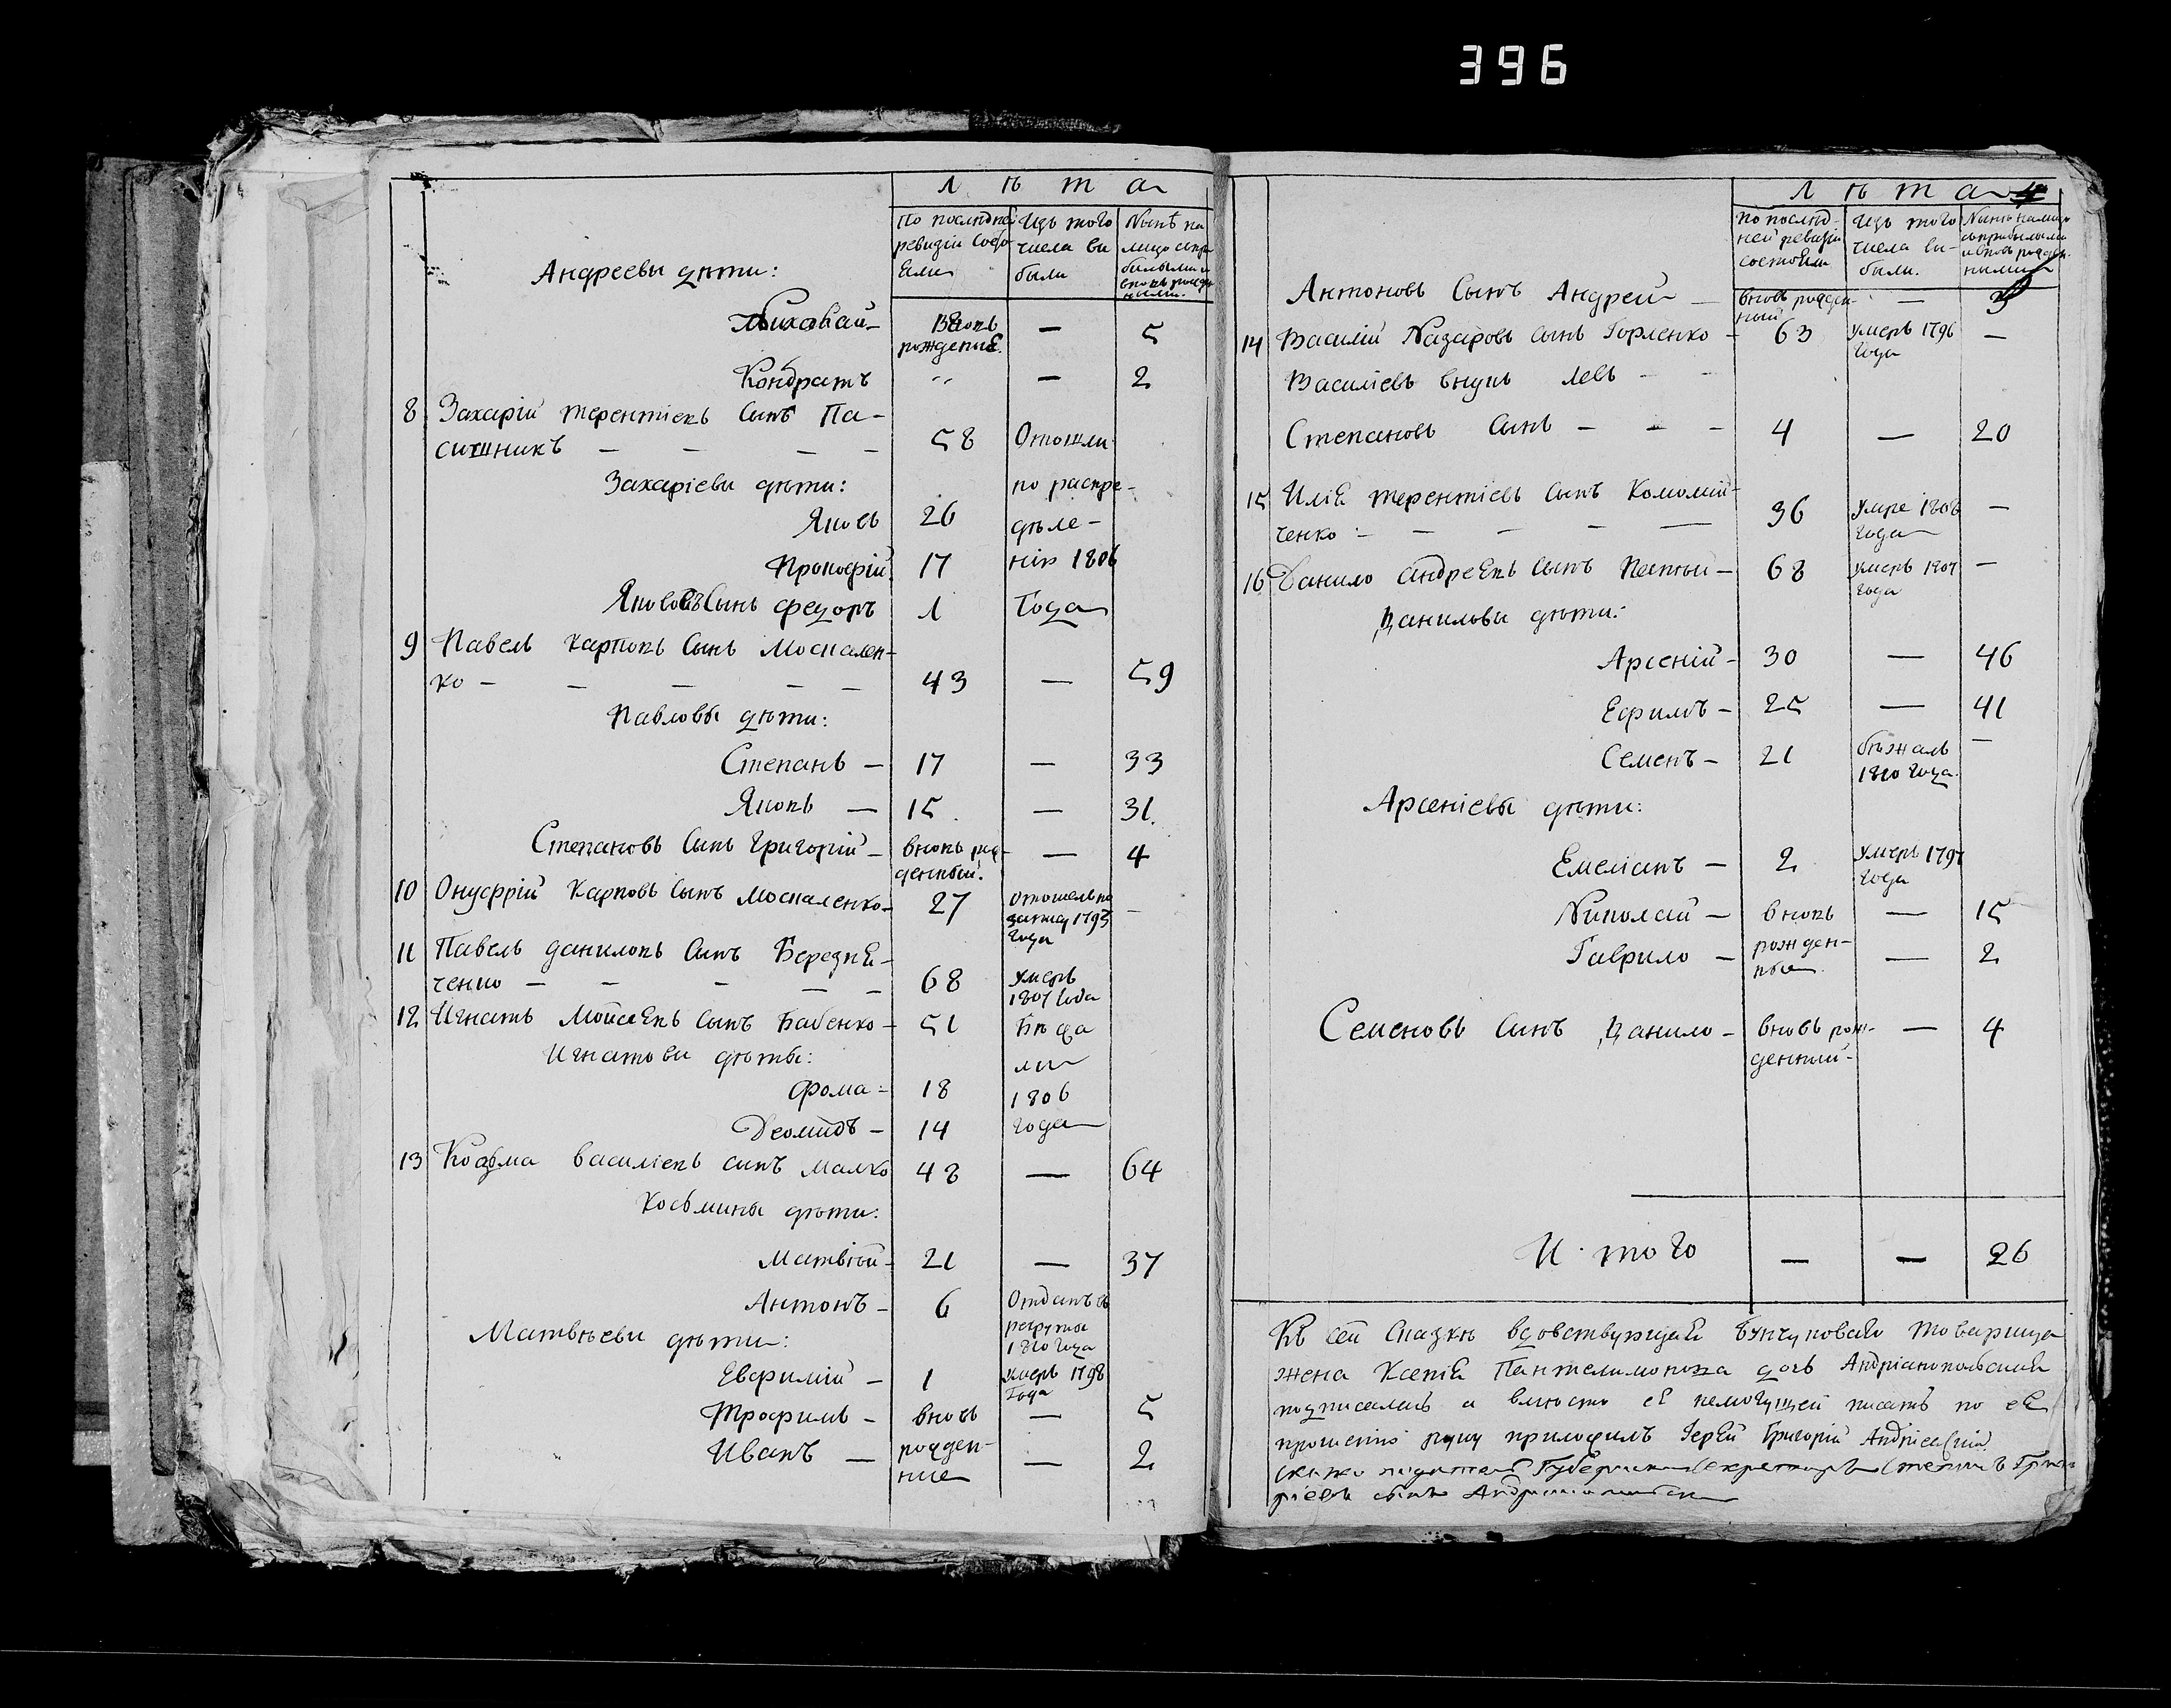 396
Л ѣ т а
По последней ревизіи состояли
Изъ того числа выбыли
Андреевы дѣти:
Михайло
рожденые.
—
5
Кондратъ
"
—
2
8 Захарій Терентіевъ сынъ Па-
сишникъ — — — —
58
Отошли
Захаріевы дѣти:
по распре-
Яковъ
26
дѣле-
Прокофій
17
нію 1806
Яковлевъ сынъ Федоръ
1
Года
9 Павелъ Карповъ сынъ Москален-
ко — — — — —
43
—
59
Павловы дѣти:
Степанъ —
17
—
33
Яковъ —
15
—
31
Степановъ сынъ Григорій —
вновь рож-
денный.
—
4
10 Онуфрій Карповъ сынъ Москаленко —
27
отошелъ
1795
года
—
11 Павелъ Даниловъ сынъ Бередни-
ченко — — — — —
68
умеръ
1807 года
12 Игнатъ Мойсеевъ сынъ Бабенко —
51
Бѣжа
Игнатовы дѣты:
ли
Фома —
18
1806
Деомидъ —
14
года
13 Козьма Василіевъ сынъ Малко
48
—
64
Косьмины дѣти:
Матвій —
21
—
37
Антонъ —
6
Отданъ въ
рекруты
1810 года
Матвѣеви дѣти:
Евфимій —
1
умеръ 1798
года
Трофимъ —
вновь
—
5
Иванъ —
рожден-
ние
—
2
Л ѣ т а
По послѣд-
ней ревизіи
состояли
Изъ того
числа вы-
были.
Антоновъ сынъ Андрей —
вновь рожден-
ный
—
3
14 Василій Назаровъ сынъ Горленко —
63
умеръ 1796
года
—
Василіевъ внукъ Левъ — —
Степановъ сынъ — — —
4
—
20
15 Илія Терентіевъ сынъ Коломій-
ченко — — — — —
36
умре 1808
года
—
16 Данило Андреевъ сынъ —
68
умеръ 1807
года
—
Даниловы дѣти:
Арсеній —
30
—
46
Ефимъ —
25
—
41
Семенъ —
21
бѣжалъ
1810 года.
—
Арсеніевы дѣти:
Емеліанъ —
2
умеръ 1797
года
Николай —
вновь
—
15
Гаврило —
рожден-
ные
—
2
Семеновъ синъ Данило —
вновь рож-
денный —
—
4
И того
—
—
26
Къ сей сказкѣ вдовствующая Бунчуковаго товарища
жена Ксенія Пантелимонова дочь Андріанопольская
подписалась а вмѣсто её немогущей писать по её
прошенію руку приложилъ Іерей Григорій Андріевскій.
Губернскій секретарь Степанъ Григо-
ріевъ сынъ